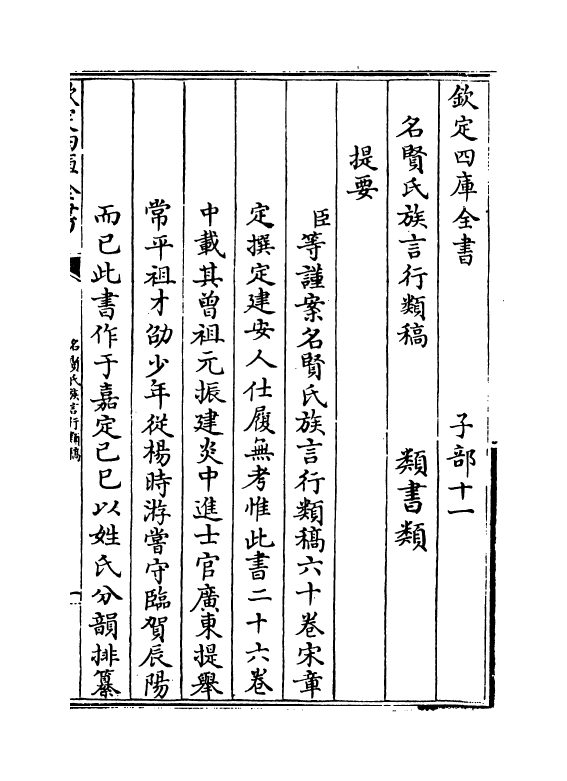 欽定四庫全書　　　　子部十一
名賢氏族言行類稿　　類書類
提要
臣等謹案名賢氏族言行類稿六十卷宋章
定撰定建安人仕履無考惟此書二十六卷
中載其曾祖元振建炎中進士官廣東提舉
常平祖才邵少年從楊時游嘗守臨賀辰陽
而已此書作于嘉定己巳以姓氏分韻排纂
欽定四庫全書
名賢氏族言行類稿
一